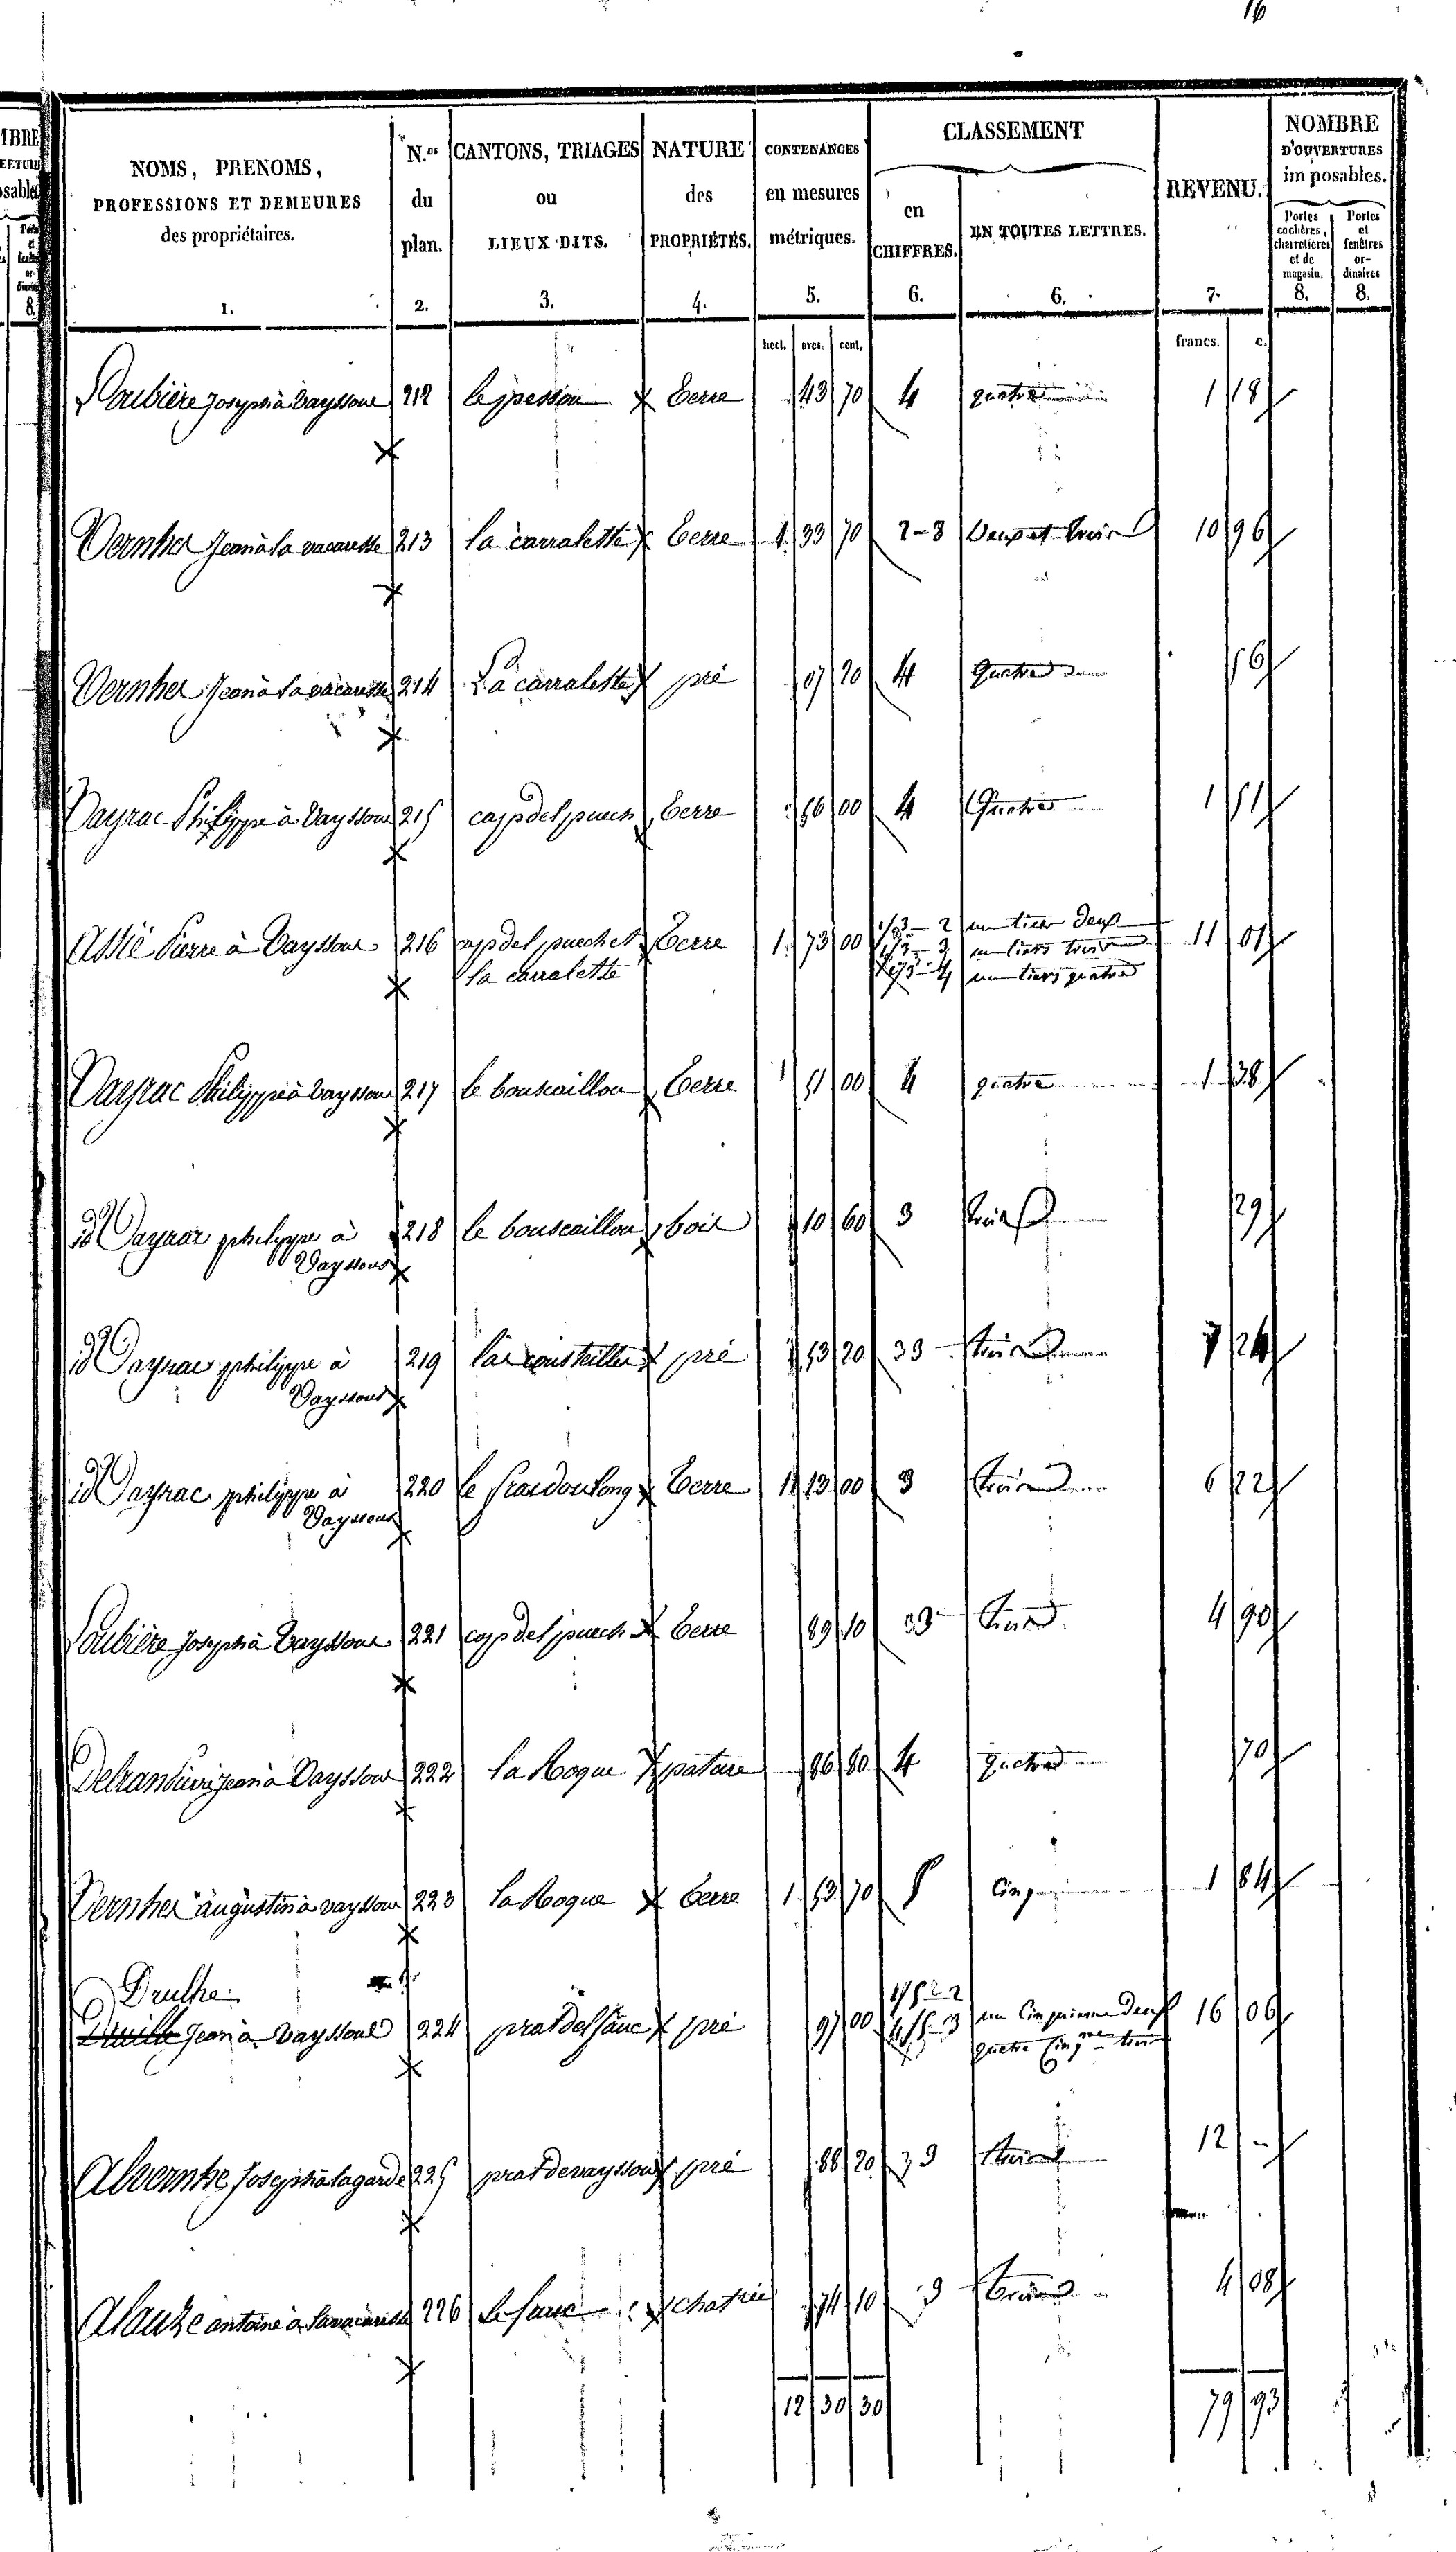 16
NOMS, PRENOMS,
PROFESSIONS ET DEMEURES
des propriétaires.
1.
N.os
du
plan.
2.
CANTONS, TRIAGES
ou
LIEUX DITS.
3.
NATURE
des
PROPRIÉTÉS.
4.
CONTENANCES
en mesures
métriques.
5.
CLASSEMENT
en
CHIFFRES.
6.
EN TOUTES LETTRES.
6.
REVENU.
7.
NOMBRE
D'OUVERTURES
imposables.
Portes
cochères,
charretières
et de
magasin.
8.
Portes
et
fenêtres
or-
dinaires
8.
hect. ares. cent. francs. c.
Soubière Joseph à Vayssous 212 le pessou terre 43 70 4 quatre 1 18
Vernhet Jean à la vacaresse 213 la carralette terre 1 33 70 2-3 Deux et trois 10 96
Vernhet Jean à la vacaresse 214 La carralette pré 07 20 4 Quatre 56
Vayrac Philippe à Vayssous 215 cap del puech terre 56 00 4 Quatre 1 51
Assié Pierre à Vayssous 216 cap del puech et terre 1 73 00 1/3-2 un tiers deux 11 01
la carralette 1/3-3 un tiers trois
1/3-4 un tiers quatre
Vayrac Philippe à Vayssous 217 le bouscaillou terre 51 00 4 quatre 1 38
id Vayrac philippe à 218 le bouscaillou bois 10 60 3 trois 29
Vayssous
id Vayrac philippe à 219 pré 53 20 3 trois 7 24
Vayssous
id Vayrac philippe à 220 terre 1 13 00 3 trois 6 22
Vayssous
Soubière Joseph à Vayssous 221 cap del puech terre 89 10 3 trois 4 90
Jean à Vayssous 222 la Roque pature 86 80 4 quatre 70
Vernhet augustin à vayssous 223 la Roque terre 1 53 70 5 Cinq 1 84
Drulhe
Jean à Vayssous 224 prat del fauc pré 97 00 1/5-2 un Cinquieme Deux 16 06
4/5-3 quatre Cinq.mes trois
Alvernhe Joseph à lagarde 225 prat de vayssous pré 88 20 3 trois 12 -
Alauze antoine à lavacaresse 226 le fauc 74 10 3 trois 4 08
12 30 30 79 93